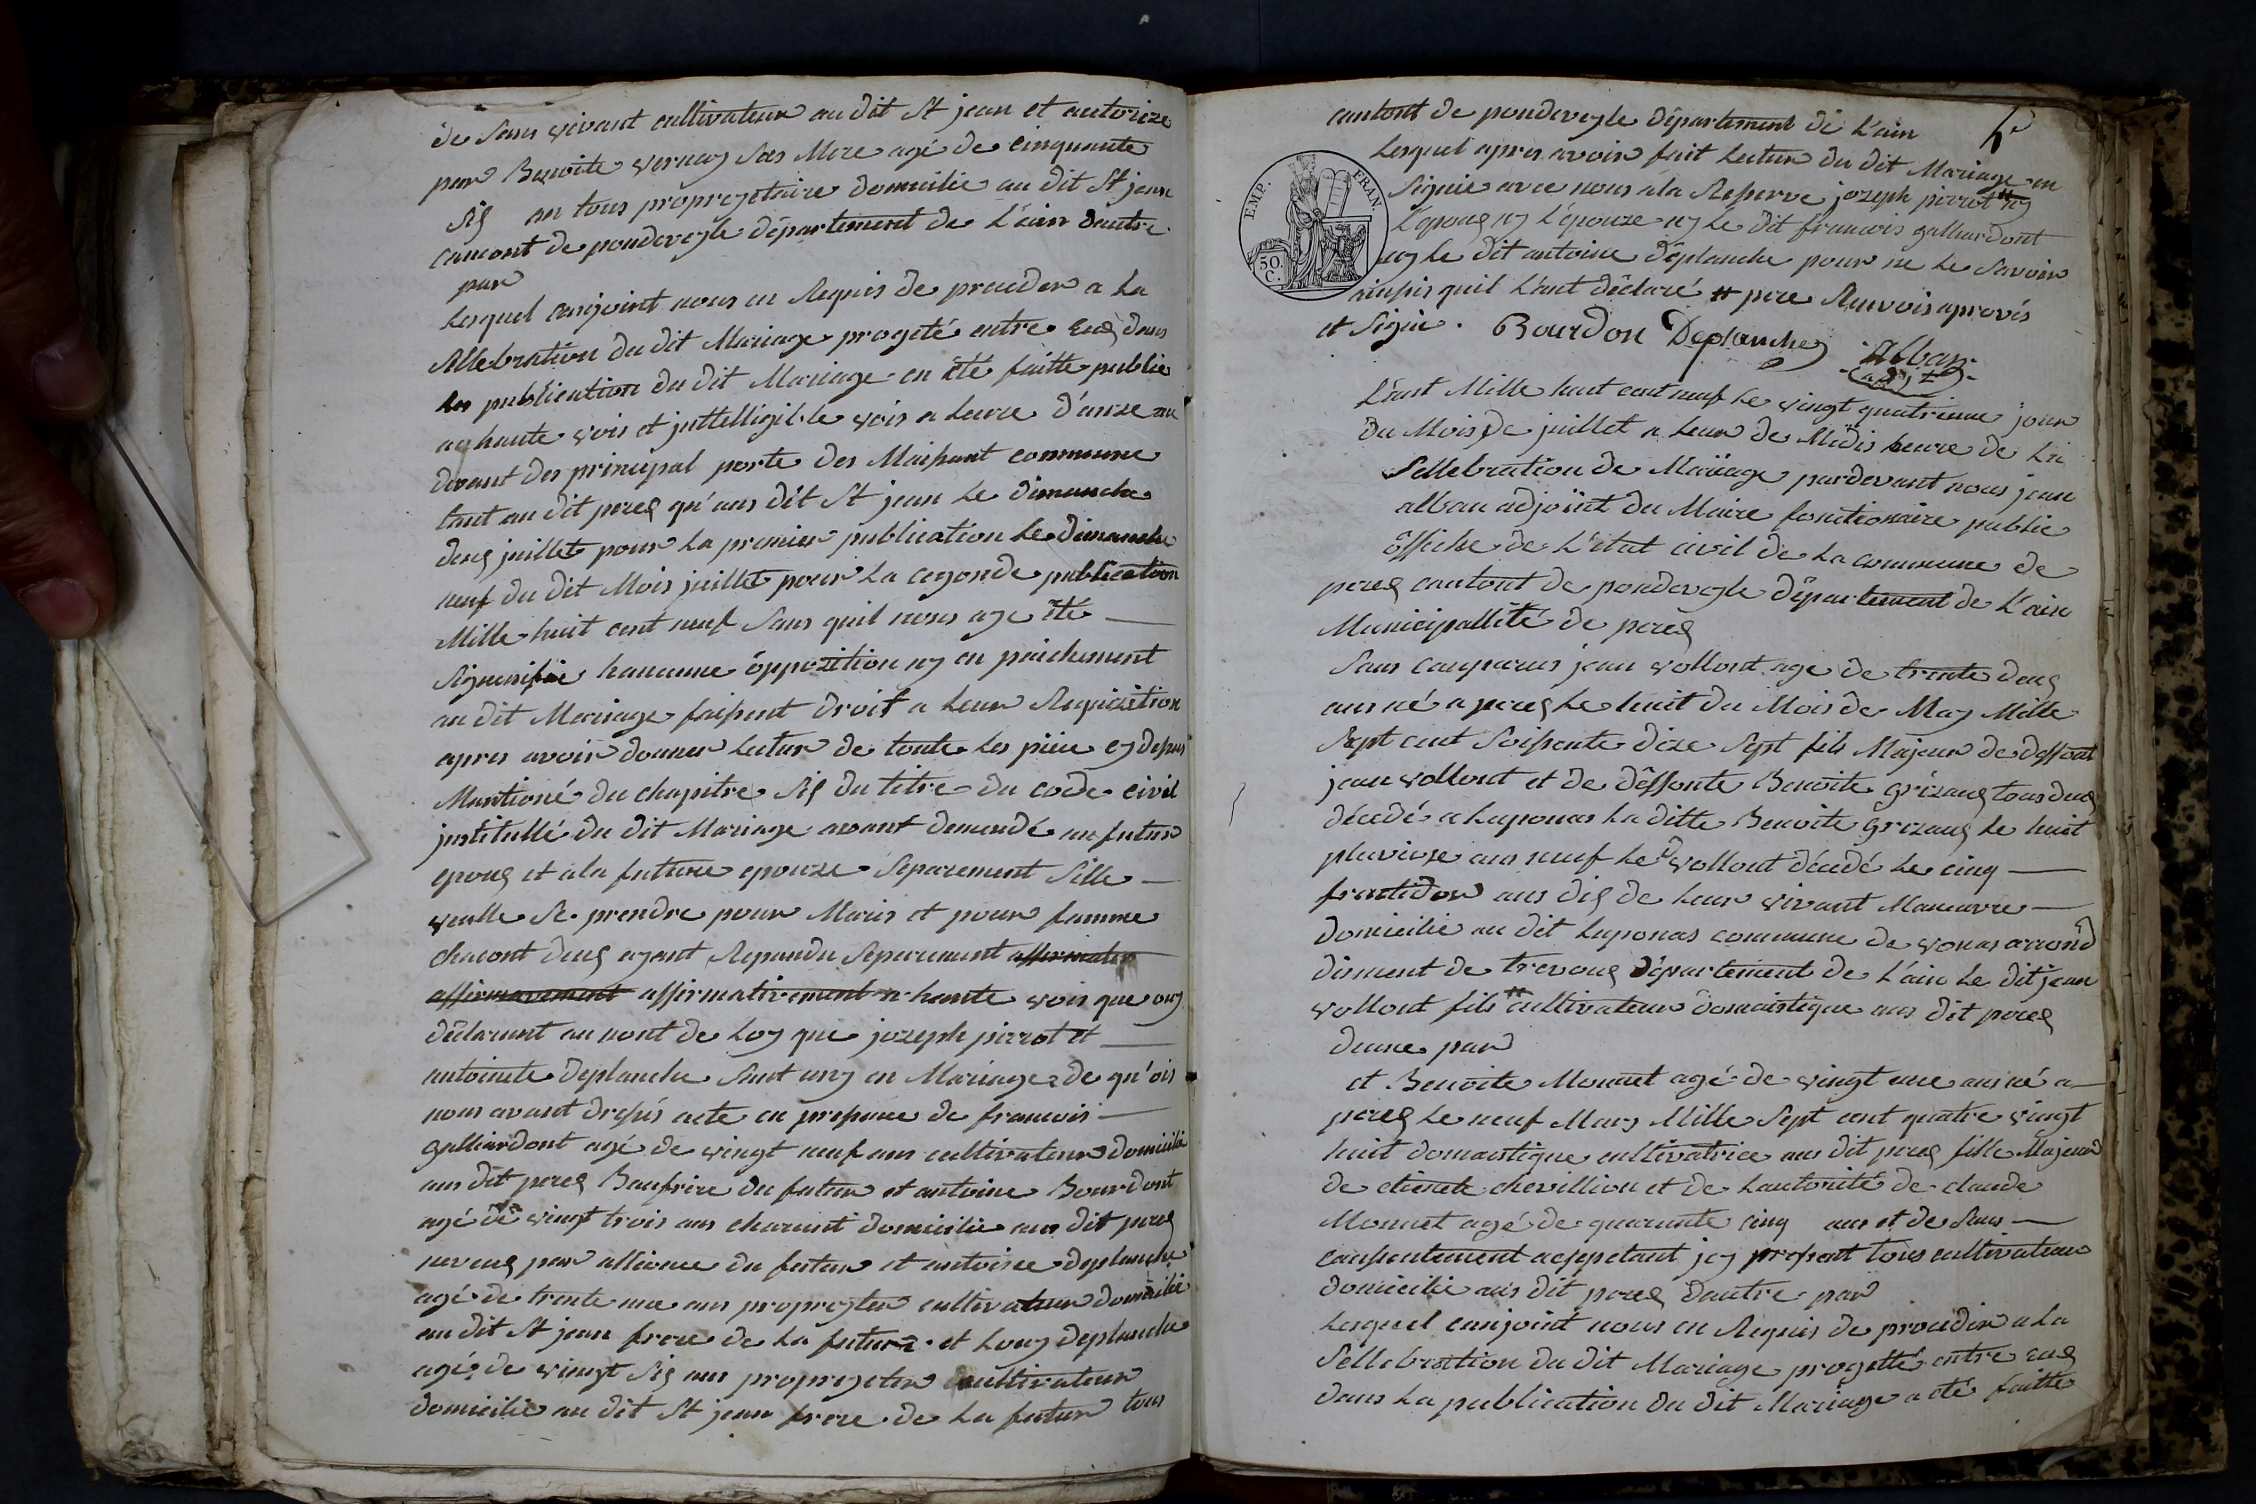 de Sans vivant cultivateur au dit St jean et autorize
par Benoite vernay Sas Mere agé de cinquante
Siq an tous propreyetaire domicilie au dit St jean
cantont de pondeveyle département de L'ain dautre
par
Lesquel conjoint nous en Requis de proceder a La
Sellebration du dit Mariage progeté entre Euq dans
Les publication du dit Mariage en été faitte publie
aq haute vois et jnttelligible vois a Leure d'onze au
devant des principal porte des Maisont commune
tant au dit pereq qu'aus dit St jean Le dimanche
deuq juillet pour La premier publication Le dimanche
neuf du dit Mois juillet pour La cegonde publication
Mille huit cent neuf Sans quil nous aye été
Signiffie haucune öppozition ny en paichement
au dit Mariage faisent droit a Leur Requizition
apres avoir donner Lectur de toute Les pièce cy depus
Mantioné du chapitre Siq du titre du code civil
jnstitullé du dit Mariage avant demandé au futur
epouq et a la future epouze Separement Sille
veulle Se prendre pour Maris et pour famme
chacont deuq ayent Repondu Separement affirmativ
affirmavement affirmativement a haute vois que ouy
déclarent au nont de Loy que jozeph pirrot et
antoinete deplanche Sont uny en Mariage de qu'ois
nous avont dressés acte en presence de francois
galliardont agé de vingt neuf ans cultivateur domicilié
aus dit pereq Baufrére du futur et antoine Bourdont
agé de vingt trois ans charunt domicilie aus dit pereq
neveuq par allience du futur et antoine deplanche
agé de trente une ans propreyter cultivateur domicilié
au dit St jean frere de La future et Louy deplanche
agé de vingt Siq ans propreyeter cultivateur
domicilie au dit St jean frere de La futur tous
cantont de pondeveyle département de L'ain
Lesquel apres avoir fait Lectur du dit Mariage en
Signie avec nous ala Reserve jozeph pirrot # ny
L'epouq ny L'épouze ny Le dit francois galliardont
ny Le dit antoine déplanche pour ne Le Savoir
ainsis quil L'ont déclaré # pere Renvois aprovés
et Signie. Bourdon Deplanche Alban
adjt
EMP. FRAN.
50. C.
L'ant Mille huit cent neuf Le vingt quatrieme jour
du Mois de juillet a Leur de Midis heure de La
Sellebration de Mariage pardevant nous jean
alban adjoint du Maire fonctionaire public
öffiche de L'état civil de La commune de
pereq cantont de pondeveyle département de L'ain
Municipallité de pereq
Sans comparus jean vollont age de trente deuq
ans né a pereq Le huit du Mois de May Mille
Sept cent Soisente dize Sept fils Majeur de deffont
jean vollont et de défonte Benoite grizauq tous deuq
décédé a Luponas La ditte Benoite grizauq Le huit
pluvieze ans neuf Le d vollont décédé Le cinq
frutidor ans diq de Leur vivant Maneuvre
domicilie au dit Luponas commune de vonas arrond
disment de trevouq département de L'ain Le dit jean
vollont fils # cultivateur domaistique aus dit pereq
deune par
et Benoite Monnet agé de vingt une ans né a
pereq Le neuf Mars Mille Sept cent quatre vingt
huit domaistique cultivatrice aus dit pereq fille Majeur
de etienete chevillion et de Lautorité de claude
Monnet agé de quarante cinq ans et de Sans
consentement acseptant jcy present tous cultivateur
domicilie aus dit pereq dautre par
Lesquel conjoint nous en Requis de procedér a La
Sellebration du dit Mariage progetté entre euq
dans La publication du dit Mariage a eté faitte